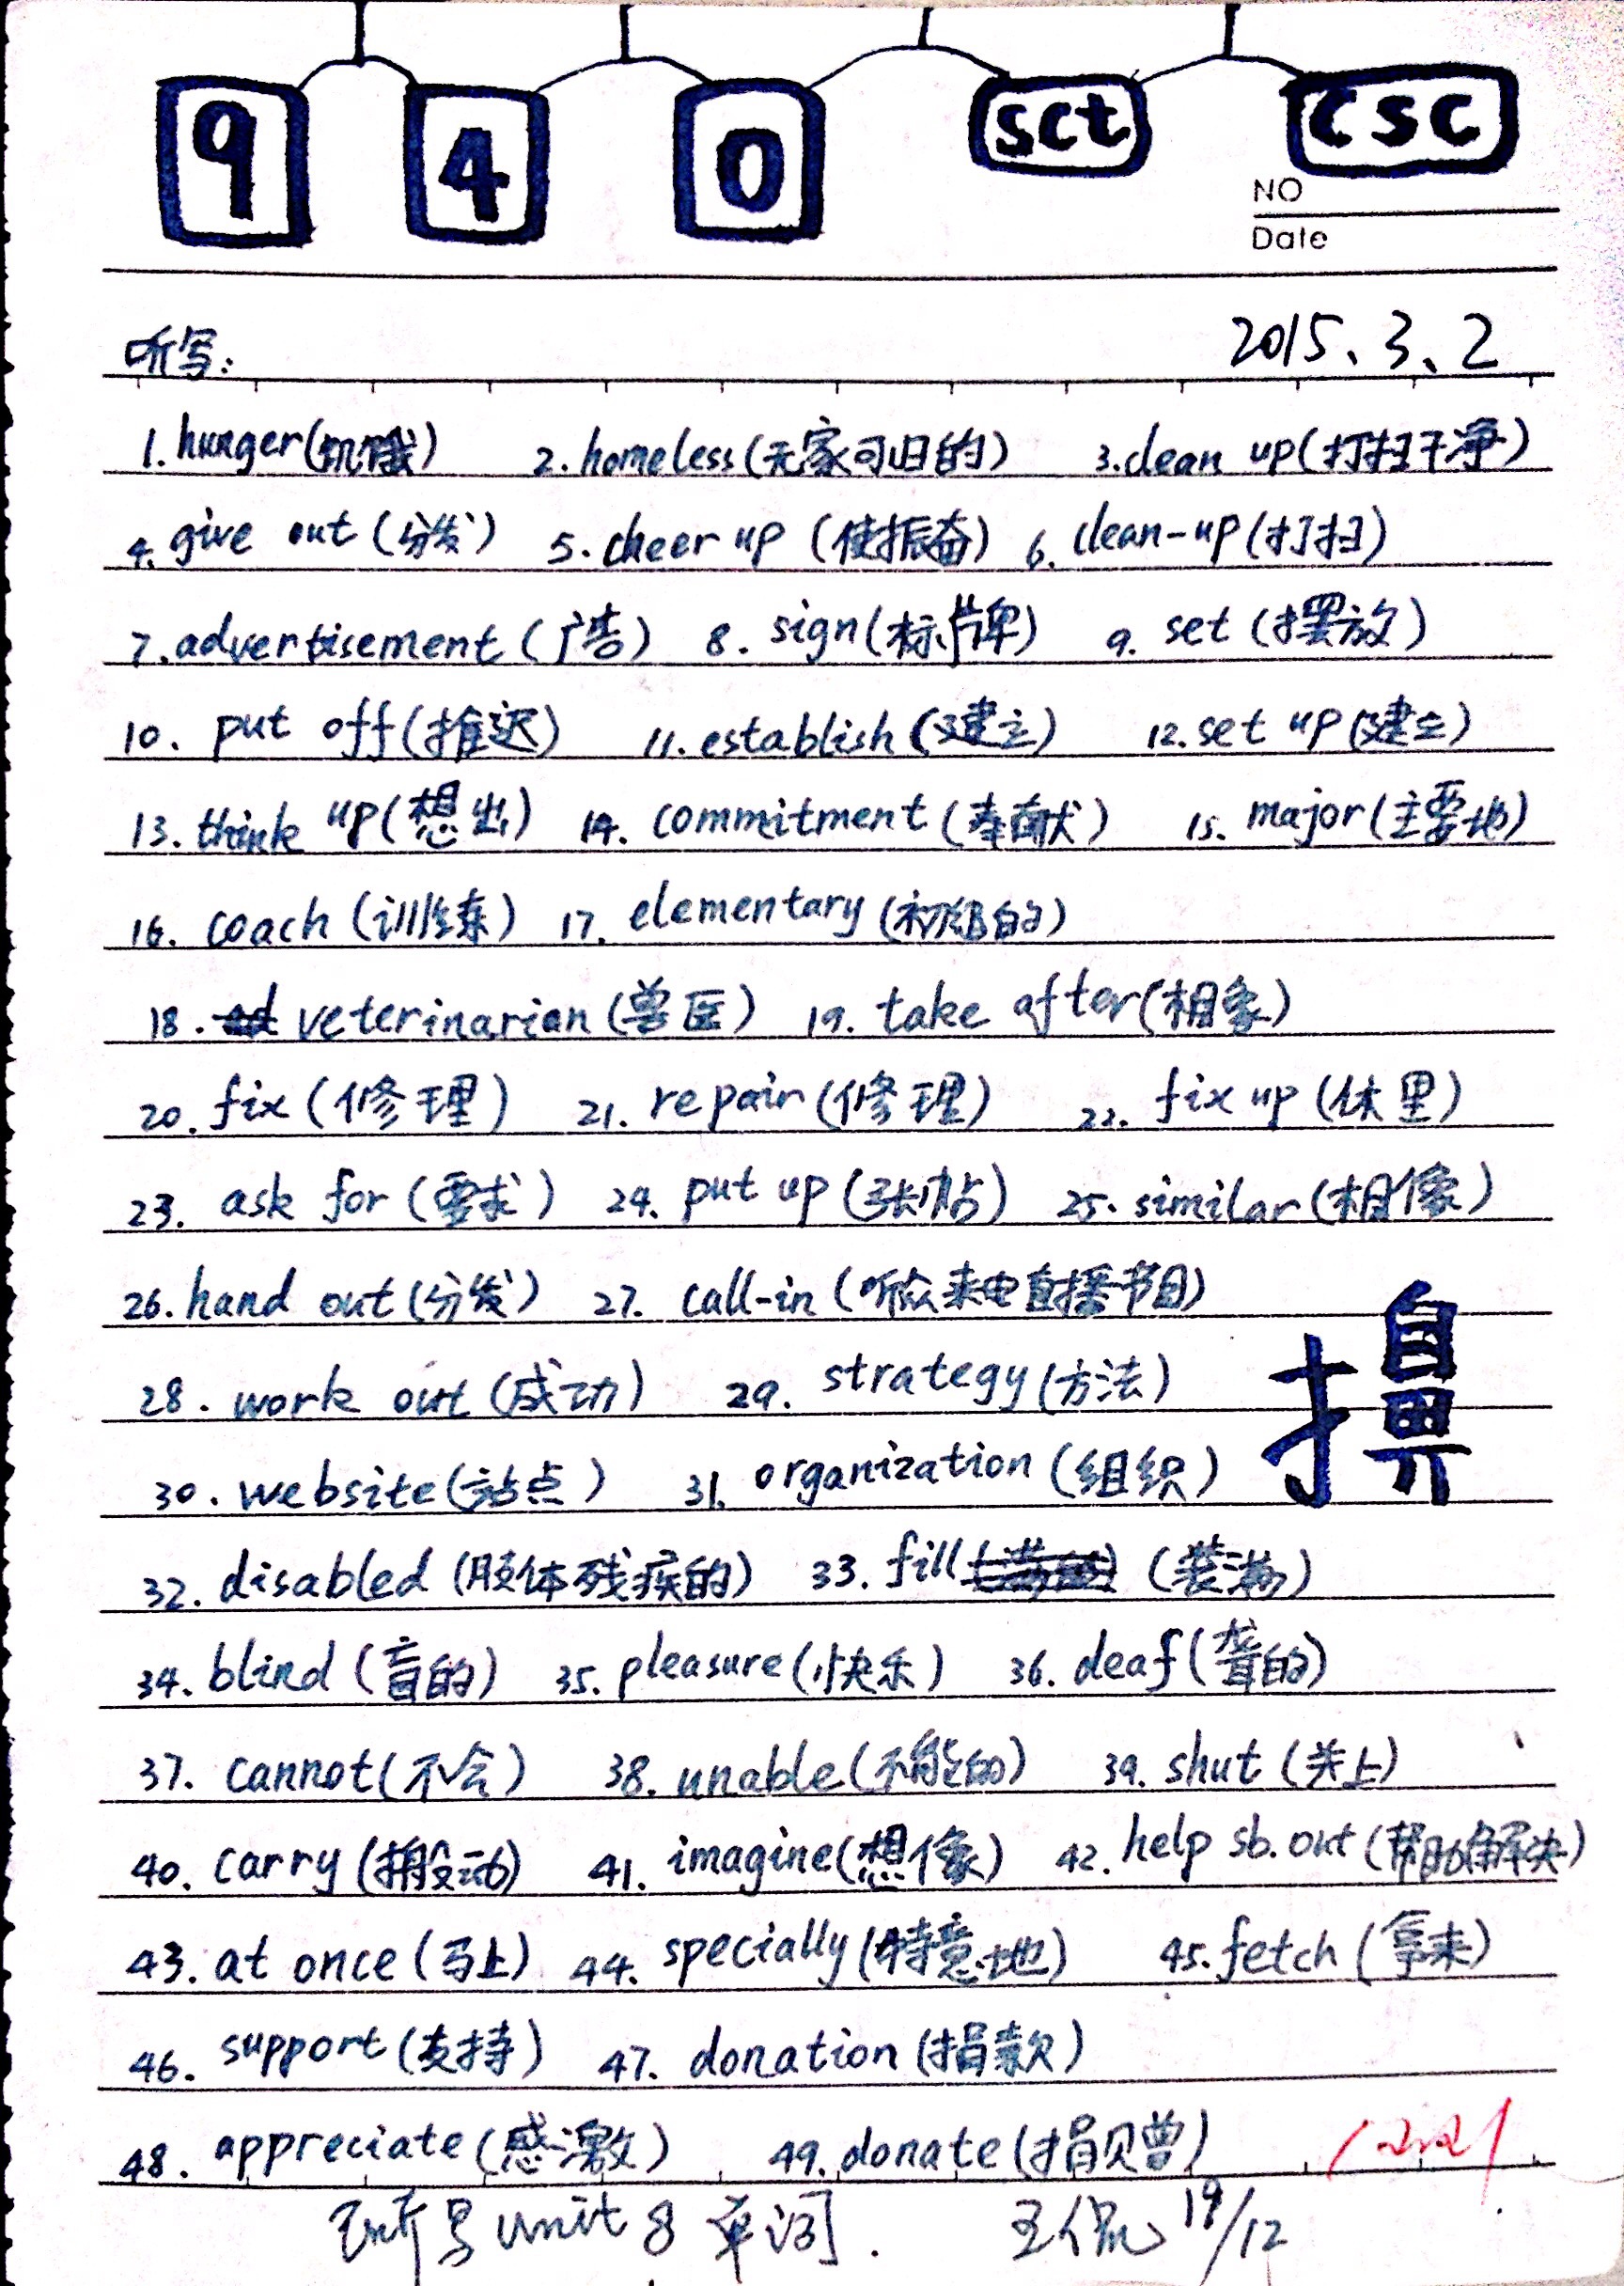 9 4 0 sct csc
NO
Date
听写: 2015、3、2
1. hunger(饥饿) 2. homeless(无家可归的) 3. clean up(打扫干净)
4. give out (分发) 5. cheer up (使振奋) 6. clean-up(打扫)
7. advertisement (广告) 8. sign(标牌) 9. set (摆放)
10. put off(推迟) 11. establish (建立) 12. set up (建立)
13. think up(想出) 14. commitment (奉献) 15. major(主要地)
16. coach (训练) 17. elementary (初级的)
18. veterinarian (兽医) 19. take after(相象)
20. fix (修理) 21. repair (修理) 22. fix up (休里)
23. ask for (要求) 24. put up (张帖) 25. similar (相像)
26. hand out (分发) 27. call-in (听众来电直播节目)
28. work out (成功) 29. strategy (方法)
30. website (站点) 31. organization (组织)
32. disabled (肢体残疾的) 33. fill (装满)
34. blind (盲的) 35. pleasure (快乐) 36. deaf (聋的)
37. cannot (不会) 38. unable (不能的) 39. shut (关上)
40. carry (搬动) 41. imagine(想像) 42. help sb. out (帮助解决)
43. at once (马上) 44. specially (特意地) 45. fetch (拿来)
46. support (支持) 47. donation (捐款)
48. appreciate (感激) 49. donate (捐赠)
听写 unit 8 单词. 19/12